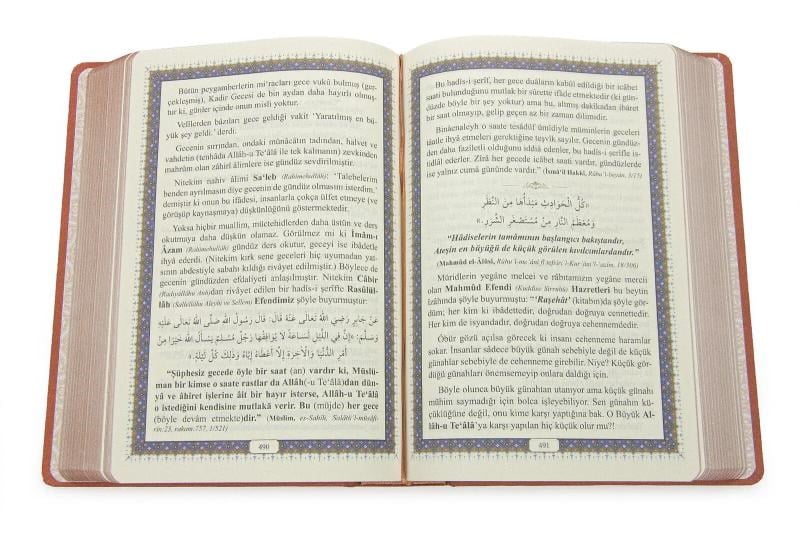 Bütün peygamberlerin mi‘racları gece vukû bulmuş (ger-
çekleşmiş), Kadir Gecesi de bin aydan daha hayırlı olmuş-
tur ki, günler içinde onun misli yoktur.
Velîlerden bâzıları gece geldiği vakit ‘Yaratılmış en bü-
yük şey geldi.’ derdi.
Gecenin sırrından, ondaki münâcâtın tadından, halvet ve
vahdetin (tenhâda Allâh-u Te‘âlâ ile tek kalmanın) zevkinden
mahrûm olan zâhirî âlimlere ise gündüz sevdirilmiştir.
Nitekim nahiv âlimi Sa‘leb (Rahimehullâh): ‘Talebelerim
benden ayrılmasın diye gecenin de gündüz olmasını isterdim.’
demiştir ki onun bu ifâdesi, insanlarla çokça ülfet etmeye (ve
görüşüp kaynaşmaya) düşkünlüğünü göstermektedir.
Yoksa hiçbir muallim, müctehidlerden daha üstün ve ders
okutmaya daha düşkün olamaz. Görülmez mi ki İmâm-ı
Âzam (Rahimehullâh) gündüz ders okutur, geceyi ise ibâdetle
ihyâ ederdi. (Nitekim kırk sene geceleri hiç uyumadan yat-
sının abdestiyle sabahı kıldığı rivâyet edilmiştir.) Böylece de
gecenin gündüzden efdaliyeti anlaşılmıştır. Nitekim Câbir
(Radıyallâhu Anh)dan rivâyet edilen bir hadîs-i şerîfte Rasûlül-
lâh (Sallellâhu Aleyhi ve Sellem) Efendimiz şöyle buyurmuştur:
عَنْ جَابِرٍ رَضِيَ اللّٰهُ تَعَالَى عَنْهُ قَالَ: قَالَ رَسُولُ اللّٰهِ صَلَّى اللّٰهُ تَعَالَى عَلَيْهِ
وَسَلَّمَ: «إِنَّ فِي اللَّيْلِ لَسَاعَةً لَا يُوَافِقُهَا رَجُلٌ مُسْلِمٌ يَسْأَلُ اللّٰهَ خَيْرًا مِنْ
أَمْرِ الدُّنْيَا وَالْآخِرَةِ إِلَّا أَعْطَاهُ إِيَّاهُ وَذٰلِكَ كُلَّ لَيْلَةٍ.»
“Şüphesiz gecede öyle bir saat (an) vardır ki, Müslü-
man bir kimse o saate rastlar da Allâh(-u Te‘âlâ)dan dün-
yâ ve âhiret işlerine âit bir hayır isterse, Allâh-u Te‘âlâ
o istediğini kendisine mutlakâ verir. Bu (müjde) her gece
(böyle devâm etmekte)dir.” (Müslim, es-Sahîh, Salâtü’l-müsâfi-
rîn:23, rakam:757, 1/521)
490
Bu hadîs-i şerîf, her gece duâların kabûl edildiği bir icâbet
saati bulunduğunu mutlak bir sûrette ifâde etmektedir (ki gün-
düzde böyle bir şey yoktur) ama bu, altmış dakikadan ibâret
bir saat olmayıp, gelip geçen az bir zaman dilimidir.
Binâenaleyh o saate tesâdüf ümîdiyle müminlerin geceleri
tâatle ihyâ etmeleri gerektiğine teşvîk sayılır. Gecenin gündüz-
den daha fazîletli olduğunu iddiâ edenler, bu hadîs-i şerîfle is-
tidlâl ederler. Zîrâ her gecede icâbet saati vardır, gündüzlerde
ise yalnız cuma gününde vardır.” (İsmâ‘îl Hakkî, Rûhu’l-beyân, 5/15)
«كُلُّ الْحَوَادِثِ مَبْدَأُهَا مِنَ النَّظَرِ
وَمُعْظَمُ النَّارِ مِنْ مُسْتَصْغَرِ الشَّرَرِ.»
“Hâdiselerin tamâmının başlangıcı bakıştandır,
Ateşin en büyüğü de küçük görülen kıvılcımlardandır.”
(Mahmûd el-Âlûsî, Rûhu’l-me‘ânî fî tefsîri’l-Kur’âni’l-‘azîm, 18/506)
Mürîdlerin yegâne melcei ve râbıtamızın yegâne mercii
olan Mahmûd Efendi (Kuddise Sirruhû) Hazretleri bu beytin
îzâhında şöyle buyurdu: “‘Raşehât’ (kitabın)da şöyle gör-
düm; her kim ki ibâdettedir, doğrudan doğruya cennettedir.
Her kim de isyandadır, doğrudan doğruya cehennemdedir.
Öbür gözü açılsa görecek ki insanı cehenneme haramlar
sokar. İnsanlar sâdece büyük günah sebebiyle değil de küçük
günahlar sebebiyle de cehenneme girebilir. Niye? Küçük gör-
düğü günahları önemsemeyip onlara daldığı için.
Böyle olunca büyük günahtan utanıyor ama küçük günahı
mühim saymadığı için bolca işleyebiliyor. Sen günahın kü-
çüklüğüne değil, onu kime karşı yaptığına bak. O Büyük Al-
lâh-u Te‘âlâ’ya karşı yapılan hiç küçük olur mu?!
491